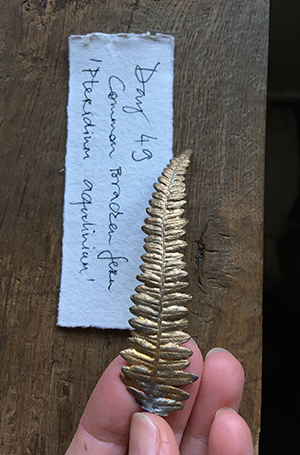 Day 49
Common Bracken fern
'Pteridium aquilinium'